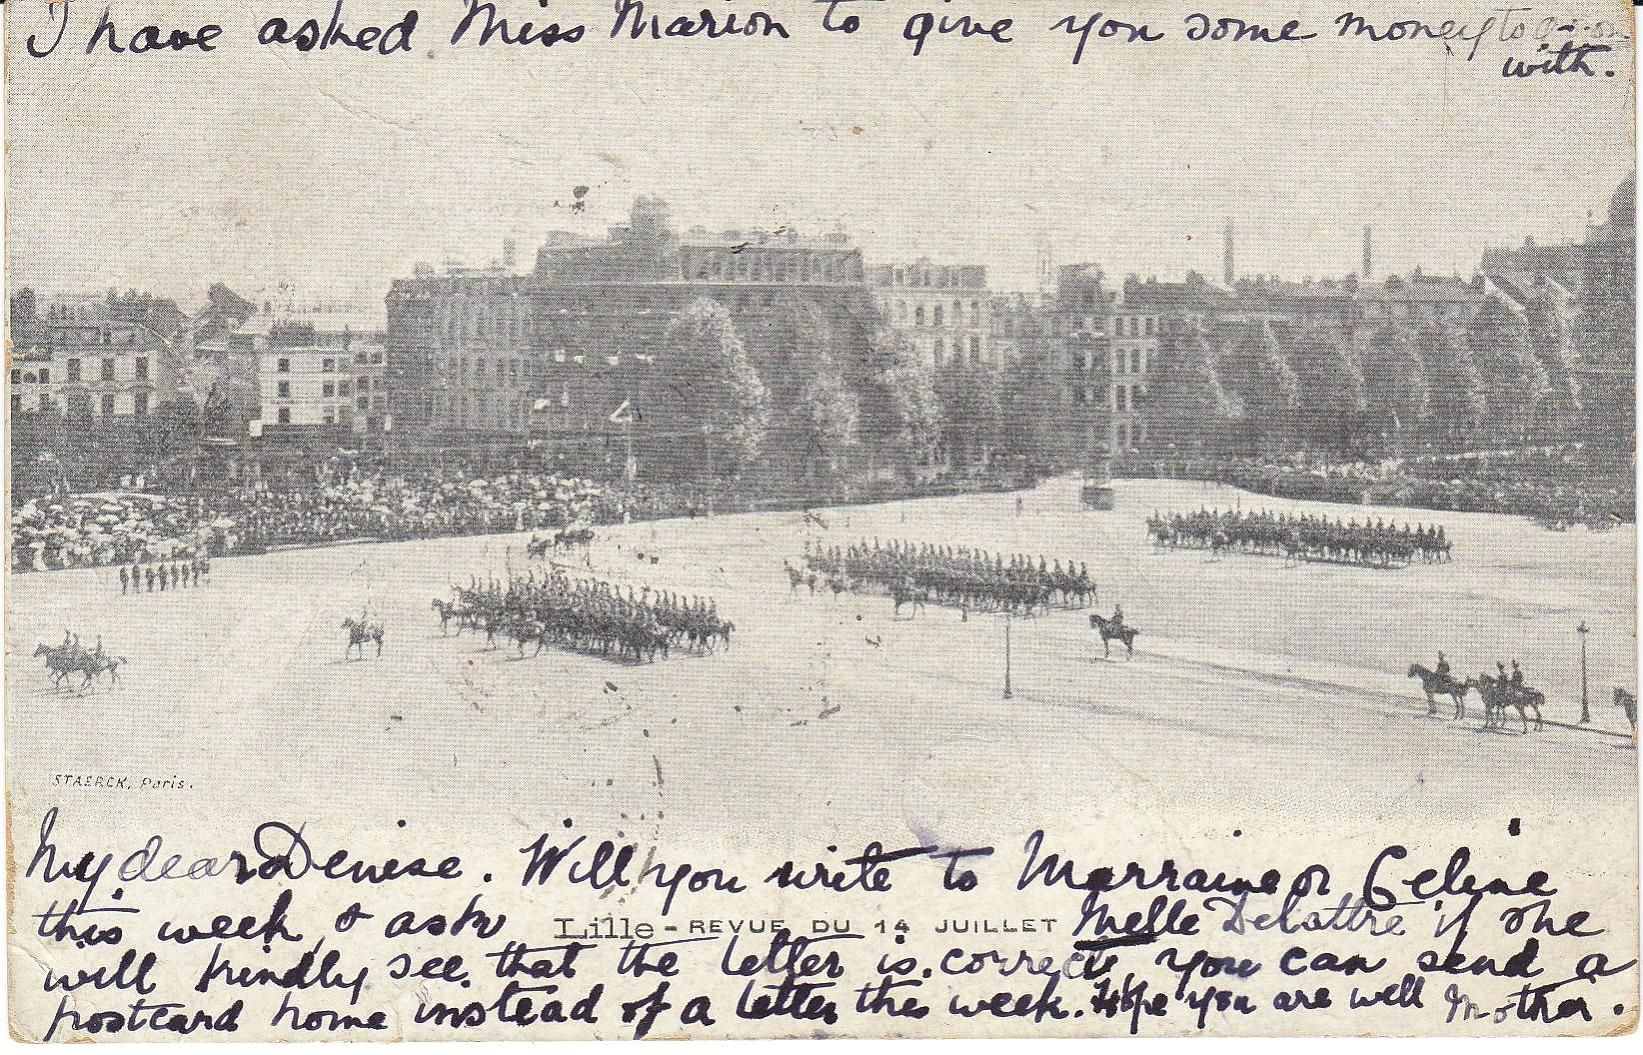 I have asked Miss Marion to give you some money to go on
with.
STAERCK, Paris.
My dear Denise. Will you write to Marraine or Celine
this week & ask Melle Delattre if she
Lille - REVUE DU 14 JUILLET
will kindly see that the letter is correct, you can send a
postcard home instead of a letter this week. Hope you are well Mother.